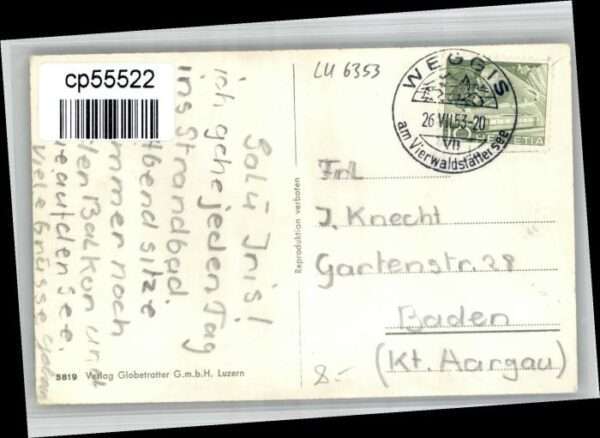 cp55522
LU 6353
WEGGIS
26 VII.53-20
VII
am Vierwaldstättersee
HELVETIA
Salü Iris!
ich gehe jeden Tag
ins Strandbad
Abend sitze
immer noch
den Balkon und
auf den See.
Viele Grüsse
Reproduktion verboten
Frl
I. Knecht
Gartenstr. 28
Baden
(Kt. Aargau)
8.-
5819 Verlag Globetrotter G.m.b.H. Luzern